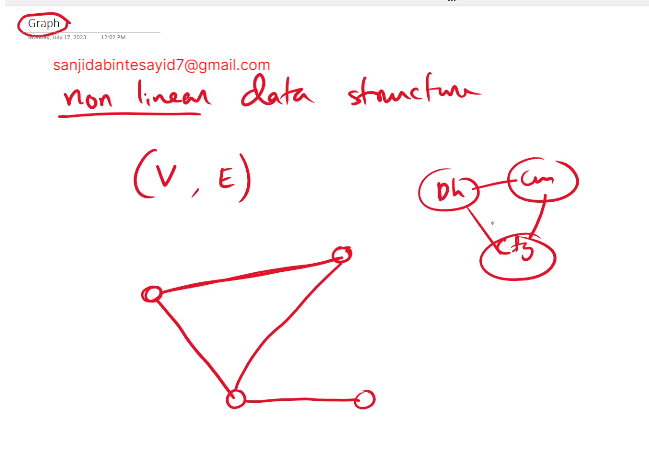 Graph
Sunday, July 17, 2023 12:02 PM
sanjidabintesayid7@gmail.com
non linear data structure
(V, E)
Dh
Cum
Ctg